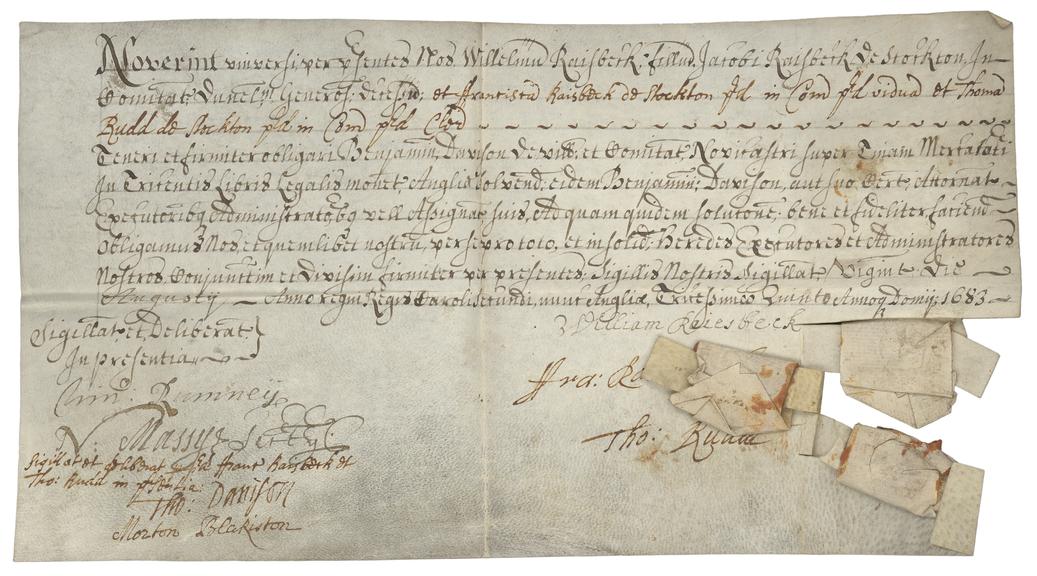 Noverint universi per p'sentes Nos Willelmu Raisbeck filiu Jacobi Raisbeck De Stockton, In
Comitat Dunelm Generos: et Francisca Raisbeck de Stockton p'd in Com p'd vidua et Thoma
Rudd de Stockton p'd in Com p'd Cler
Teneri et firmiter obligari Benjamin Davison De vill et Comitat Novicastri super Tinam Mercatori
In Tricentis Libris Legalis monet Angliæ Solvend eidem Benjamin Davison, aut suo Cert Attornat
Executoribq Administratobq vell Assignat suis, Ad quam quidem solutone bene et fideliter faciend
Obligamus Nos et quemlibet nostru, per se pro toto, et in solid: Heredes Executores et Administratores
Nostros, Conjunctim et Divisim firmiter per presentes, Sigillis Nostris Sigillat Vigint Die
Augusty Anno regni Regis Caroli Secundi, nunc Angliæ, Tricessimeo Quinto Annoq Domij: 1683
Sigillat et Deliberat
In presentia
William Raiesbeck
Rumney
Fra: Ra
Massye
Tho: Rudd
Sigillat et deliberat p'd Franc Raisbeck et
Tho: Rudd in p'sentia:
Tho: Davison
Morton Blakiston